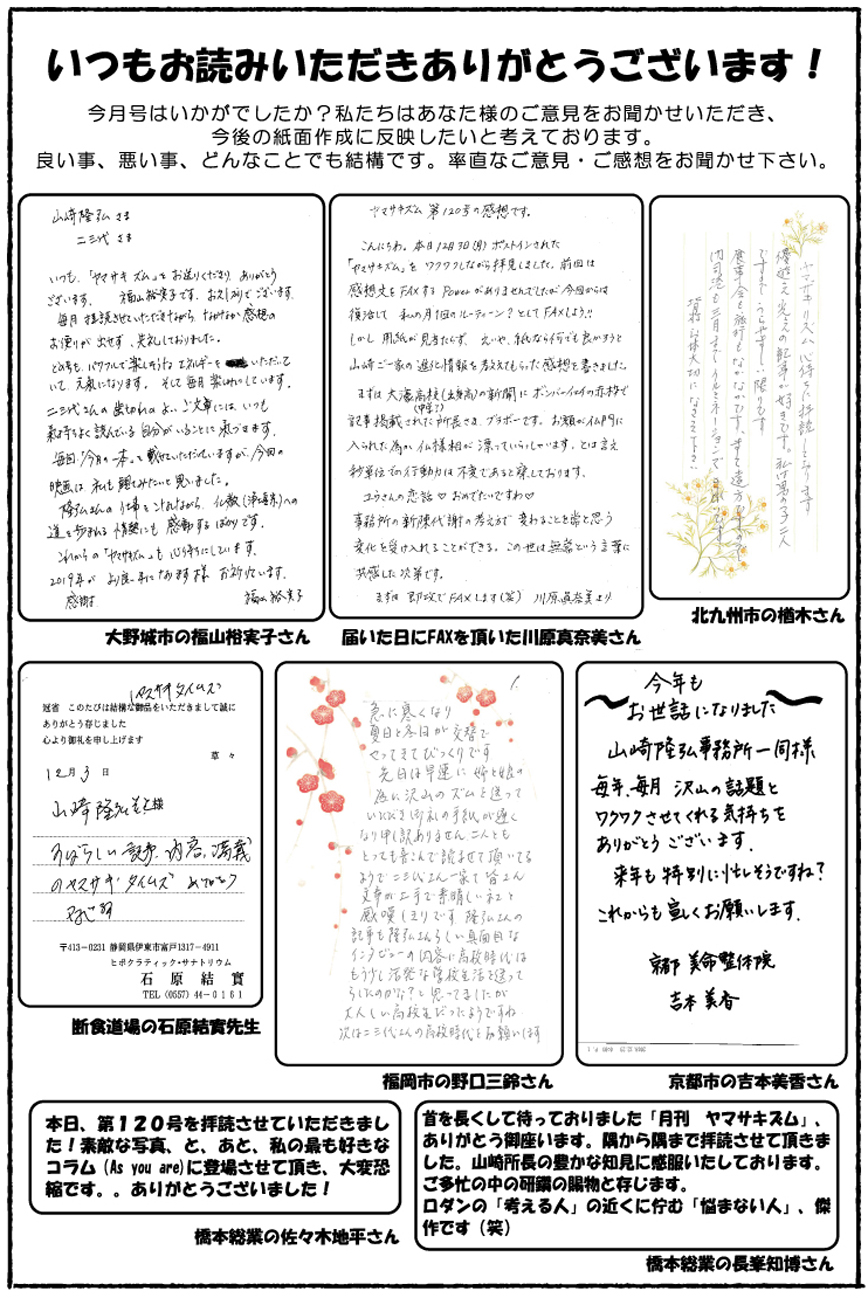 いつもお読みいただきありがとうございます！
今月号はいかがでしたか？私たちはあなた様のご意見をお聞かせいただき、
今後の紙面作成に反映したいと考えております。
良い事、悪い事、どんなことでも結構です。率直なご意見・ご感想をお聞かせ下さい。
山崎隆弘さま
二三代さま
いつも、「ヤマサキズム」をお送りくださり ありがとう
ございます。 福山裕実子です。お久しぶりでございます。
毎月拝読させていただきながら なかなか感想の
お便りが出せず、失礼しておりました。
どの号も、パワフルで楽しそうな エネルギーを いただいて
いて、元気になります。そして毎月楽しみにしています。
二三代さんの歯切れのよいご文章には、いつも
気持ちよく読んでいる自分がいることに気づきます。
毎回「今月の一本」を載せていただいていますが、今回の
映画は私も観てみたいと思いました。
隆弘さんの仕事をこなされながら、仏教(浄土真宗)への
道を歩まれる情熱にも感動するばかりです。
これからの「ヤマサキズム」も心待ちにしています。
2019年が より良い年になります様 お祈りいます。
感謝 福山裕実子
大野城市の福山裕実子さん
ヤマサキズム 第120号の感想です。
こんにちわ。本日12月3日(月)ポストインされた
「ヤマサキズム」を ワクワクしながら拝見しました。前回は
感想文をFAXする Powerがありませんでしたが今回からは
復活して 私の月1回のルーティーン？としてFAXしよう!!
しかし 用紙が見当たらず、えいや、紙なら何でも良かろうと
山崎ご一家の進化情報を教えてもらった感想を書きました。
まずは大濠高校(出身高)の新聞に ボンバーイエイの赤枠で
記事掲載された所長さま、ブラボーです。お顔が仏門に
入られた為か 仏様相が 漂っていらっしゃいます。とは言え
秒単位での行動力は不変であると察しております。
ユウさんの恋話♡おめでたいですわ♡
事務所の新陳代謝の考え方で 変わることを常と思う
変化を受け入れることができる。この世は無常という言葉に
共感した次第です。
まずは 即攻でFAXします(笑) 川原真奈美より
届いた日にFAXを頂いた川原真奈美さん
ヤマサキリズム心待ちに拝読しております
優遊さん 光さんの記事が好きです。私は男の子二人
ですまで うらやましい限りです
食事会も旅行もなかなかです。
門司港も三月までイルミネーションで きれいです
皆様お体大切になさって下さい
北九州市の楢木さん
ヤマサキタイムズ
冠省 このたびは結構な御品をいただきまして誠に
ありがとう存じました
心より御礼を申し上げます
草々
12月3日
山崎隆弘様
すばらしい記事、内容、満載
のヤマサキタイムズ ありがとう
〒413-0231 静岡県伊東市富戸1317-4911
ヒポクラティック・サナトリウム
石原結實
TEL (0557) 44-0161
断食道場の石原結實先生
急に寒くなり
夏日と冬日が交替で
やってきてびっくりです
先日は早速に姉と娘の
為に沢山のズムを送って
いただき御礼の手紙が遅く
なり申し訳ありません 二人とも
とっても喜こんで読ませて頂いてる
ようで 二三代さん一家て 皆さん
文章が上手で素晴しいネェと
感嘆しきりです 隆弘さんの
記事も隆弘さんらしい真面目な
インタビューの内容に高校時代は
もう少し活発な学校生活を送って
らしたのかな？と思ってましたが
大人しい高校生だったようですね
次は二三代さんの高校時代をお願いします
福岡市の野口三鈴さん
今年も
お世話になりました
山崎隆弘事務所一同様
毎年、毎月 沢山の話題と
ワクワクさせてくれる気持ちを
ありがとうございます。
来年も特別に忙しそうですね？
これからも宜しくお願いします。
京都 美命整体院
吉本美香
京都市の吉本美香さん
本日、第１２０号を拝読させていただきまし
た！素敵な写真、と、あと、私の最も好きな
コラム(As you are)に登場させて頂き、大変恐
縮です。。ありがとうございました！
橋本総業の佐々木地平さん
首を長くして待っておりました「月刊 ヤマサキズム」、
ありがとう御座います。隅から隅まで拝読させて頂きま
した。山崎所長の豊かな知見に感服いたしております。
ご多忙の中の研鑽の賜物と存じます。
ロダンの「考える人」の近くに佇む「悩まない人」、傑
作です（笑）
橋本総業の長峯知博さん